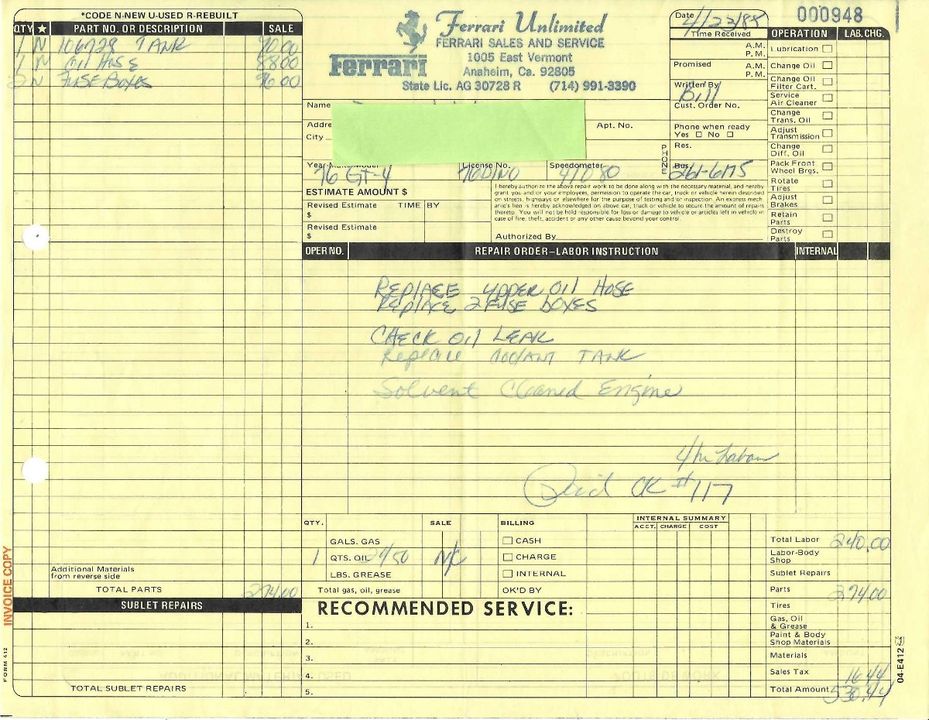 *CODE N-NEW U-USED R-REBUILT
QTY ★ PART NO. OR DESCRIPTION SALE
1 N 106728 TANK 90.00
1 N Oil HOSE 88.00
2 N FUSE BOXES 96.00
Additional Materials
from reverse side
TOTAL PARTS 274.00
SUBLET REPAIRS
TOTAL SUBLET REPAIRS
INVOICE COPY
FORM 412
Ferrari Unlimited
FERRARI SALES AND SERVICE
Ferrari
1005 East Vermont
Anaheim, Ca. 92805
State Lic. AG 30728 R (714) 991-3390
Date 4/22/88
000948
Time Received A.M.
P.M.
Promised A.M.
P.M.
Written By Bill
Cust. Order No.
Name
Addre
City
Apt. No.
Phone when ready
Yes □ No □
PHONE
Res.
Bus. 261-6175
Year-Make-Model 76 GT-4
License No. 76DINO
Speedometer 47080
ESTIMATE AMOUNT $
Revised Estimate TIME BY
$
Revised Estimate
$
I hereby authorize the above repair work to be done along with the necessary material, and hereby
grant you and/or your employees, permission to operate the car, truck or vehicle herein described
on streets, highways or elsewhere for the purpose of testing and/or inspection. An express mech-
anic's lien is hereby acknowledged on above car, truck or vehicle to secure the amount of repairs
thereto. You will not be held responsible for loss or damage to vehicle or articles left in vehicle in
case of fire, theft, accident or any other cause beyond your control.
Authorized By
OPERATION LAB.CHG.
Lubrication
Change Oil
Change Oil
Filter Cart.
Service
Air Cleaner
Change
Trans. Oil
Adjust
Transmission
Change
Diff. Oil
Pack Front
Wheel Brgs.
Rotate
Tires
Adjust
Brakes
Retain
Parts
Destroy
Parts
OPER NO. REPAIR ORDER–LABOR INSTRUCTION INTERNAL
REPlACE UPPER Oil HOSE
REPlACE 2 FUSE BOXES
CHECK Oil LEAK
Replace COOlANT TANK
Solvent Cleaned Engine
4 hr Labor
Paid CK # 117
QTY. SALE BILLING
INTERNAL SUMMARY
ACCT. CHARGE COST
GALS. GAS CASH
1 QTS. OIL 20/50 N/C CHARGE
LBS. GREASE INTERNAL
Total gas, oil, grease OK'D BY
RECOMMENDED SERVICE:
1.
2.
3.
4.
5.
Total Labor 240.00
Labor-Body
Shop
Sublet Repairs
Parts 274.00
Tires
Gas, Oil
& Grease
Paint & Body
Shop Materials
Materials
Sales Tax 16.44
Total Amount 530.44
04-E412